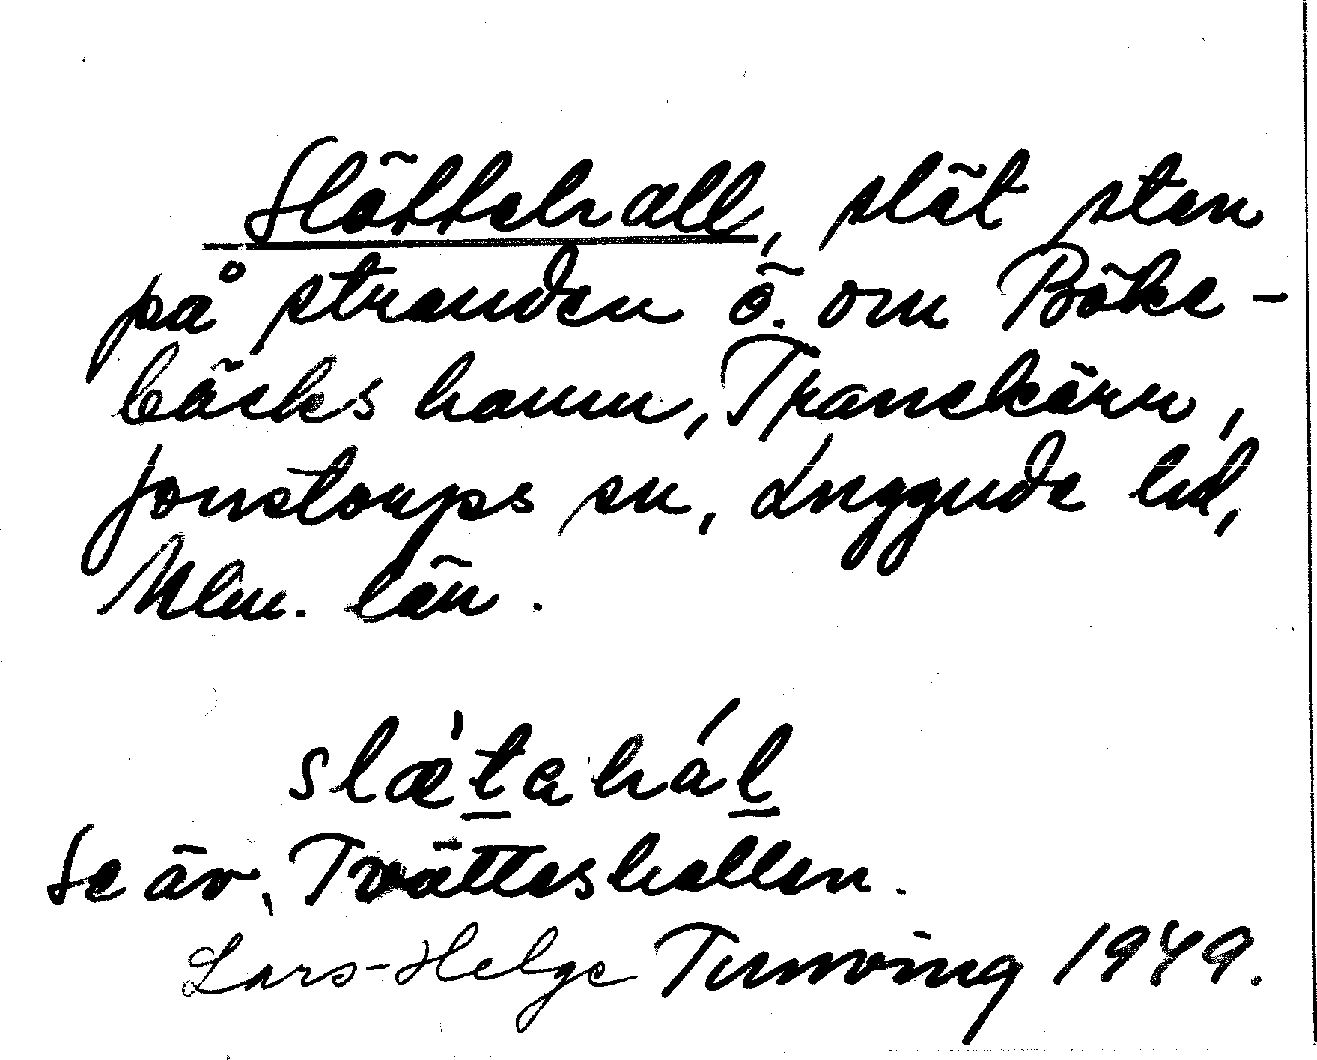 Slättehall, slät sten
på stranden ö. om Böke-
bäcks hamn, Tranekärr,
Jonstorps sn, Luggude hd,
Mlm. län.
slæ̀t̲ahál̲
Se äv. Tvätteshallen.
Lars-Helge Tunving 1949.